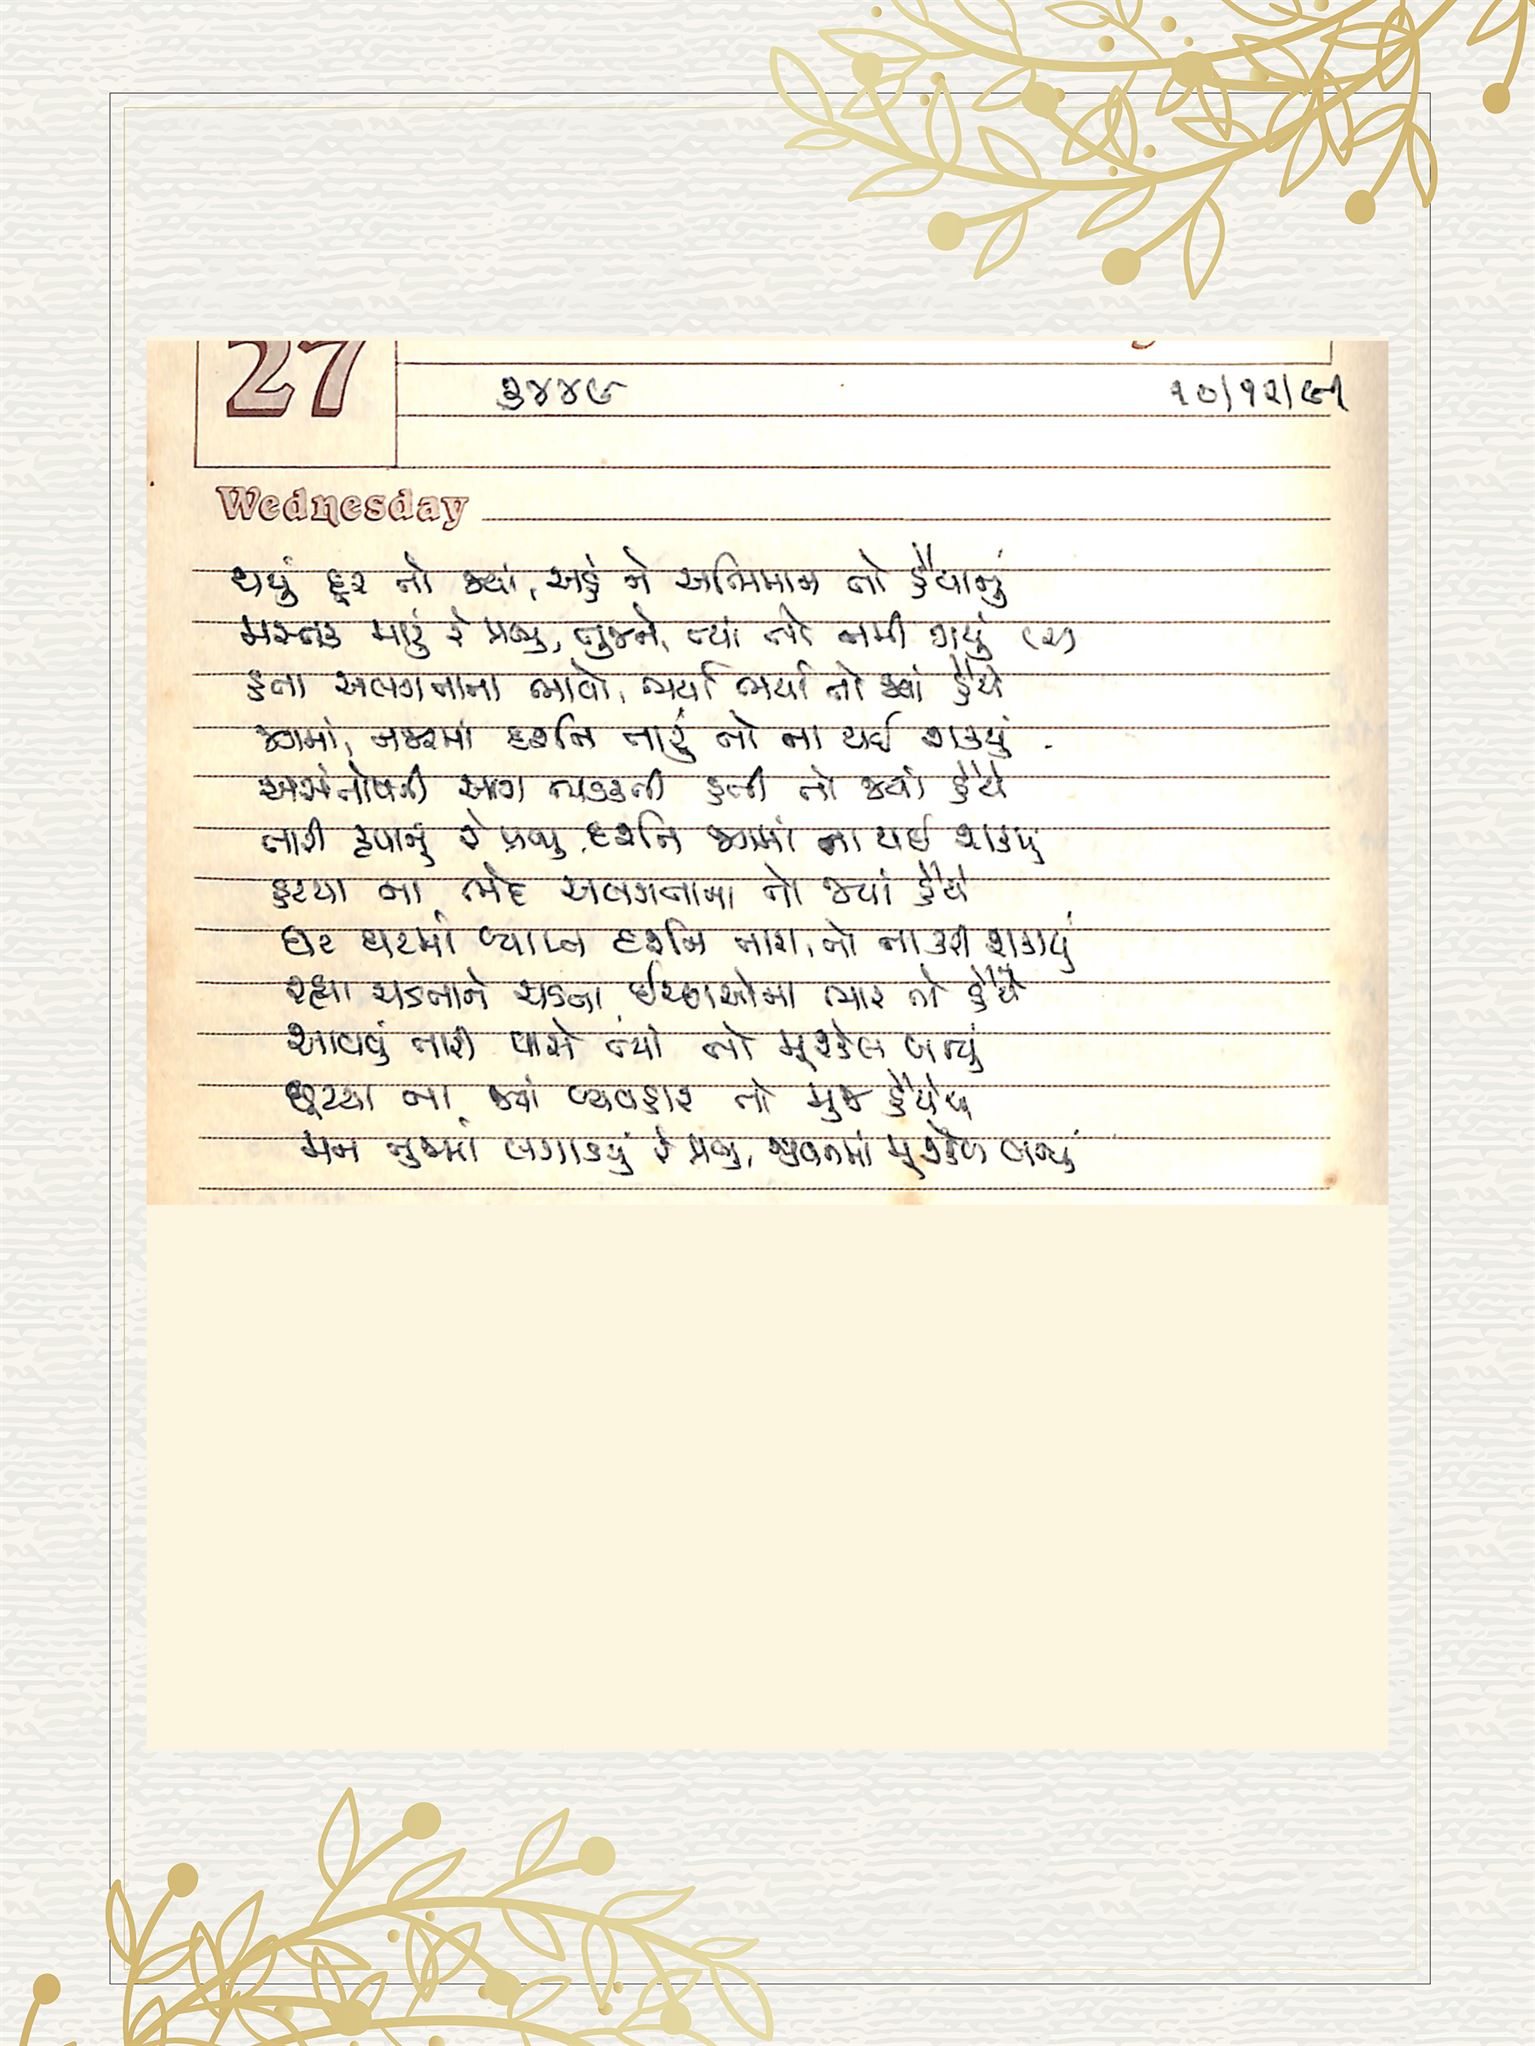 27
૩૪૪૭ ૧૦/૧૨/૯૧
Wednesday
થયું દૂર તો જ્યાં, અહં ને અભિમાન તો હૈયાનું
મસ્તક મારું રે પ્રભુ, તુજને, ત્યાં તો નમી ગયું (૨)
હતા અલગતાના ભાવો, ભર્યા ભર્યા તો જ્યાં હૈયે
જગમાં, નજરમાં દર્શન તારું તો ના થઈ શક્યું
અસંતોષની આગ ભડકતી હતી તો જ્યાં હૈયે
તારી કૃપાનું રે પ્રભુ દર્શન જગમાં ના થઈ શક્યું
હટયા ના ભેદ અલગતાના તો જ્યાં હૈયે
ઘટ ઘટમાં વ્યાપ્ત દર્શન તારા, તો ના કરી શકાયું
રહ્યા ચડતાને ચડતા ઈચ્છાઓના ભાર તો હૈયે
આવવું તારી પાસે ત્યાં તો મૂશ્કેલ બન્યું
છૂટયા ના જ્યાં વ્યવહાર તો મુજ હૈયેથી
મન તુજમાં લગાડવું રે પ્રભુ, જીવનમાં મૂશ્કેલ બન્યું